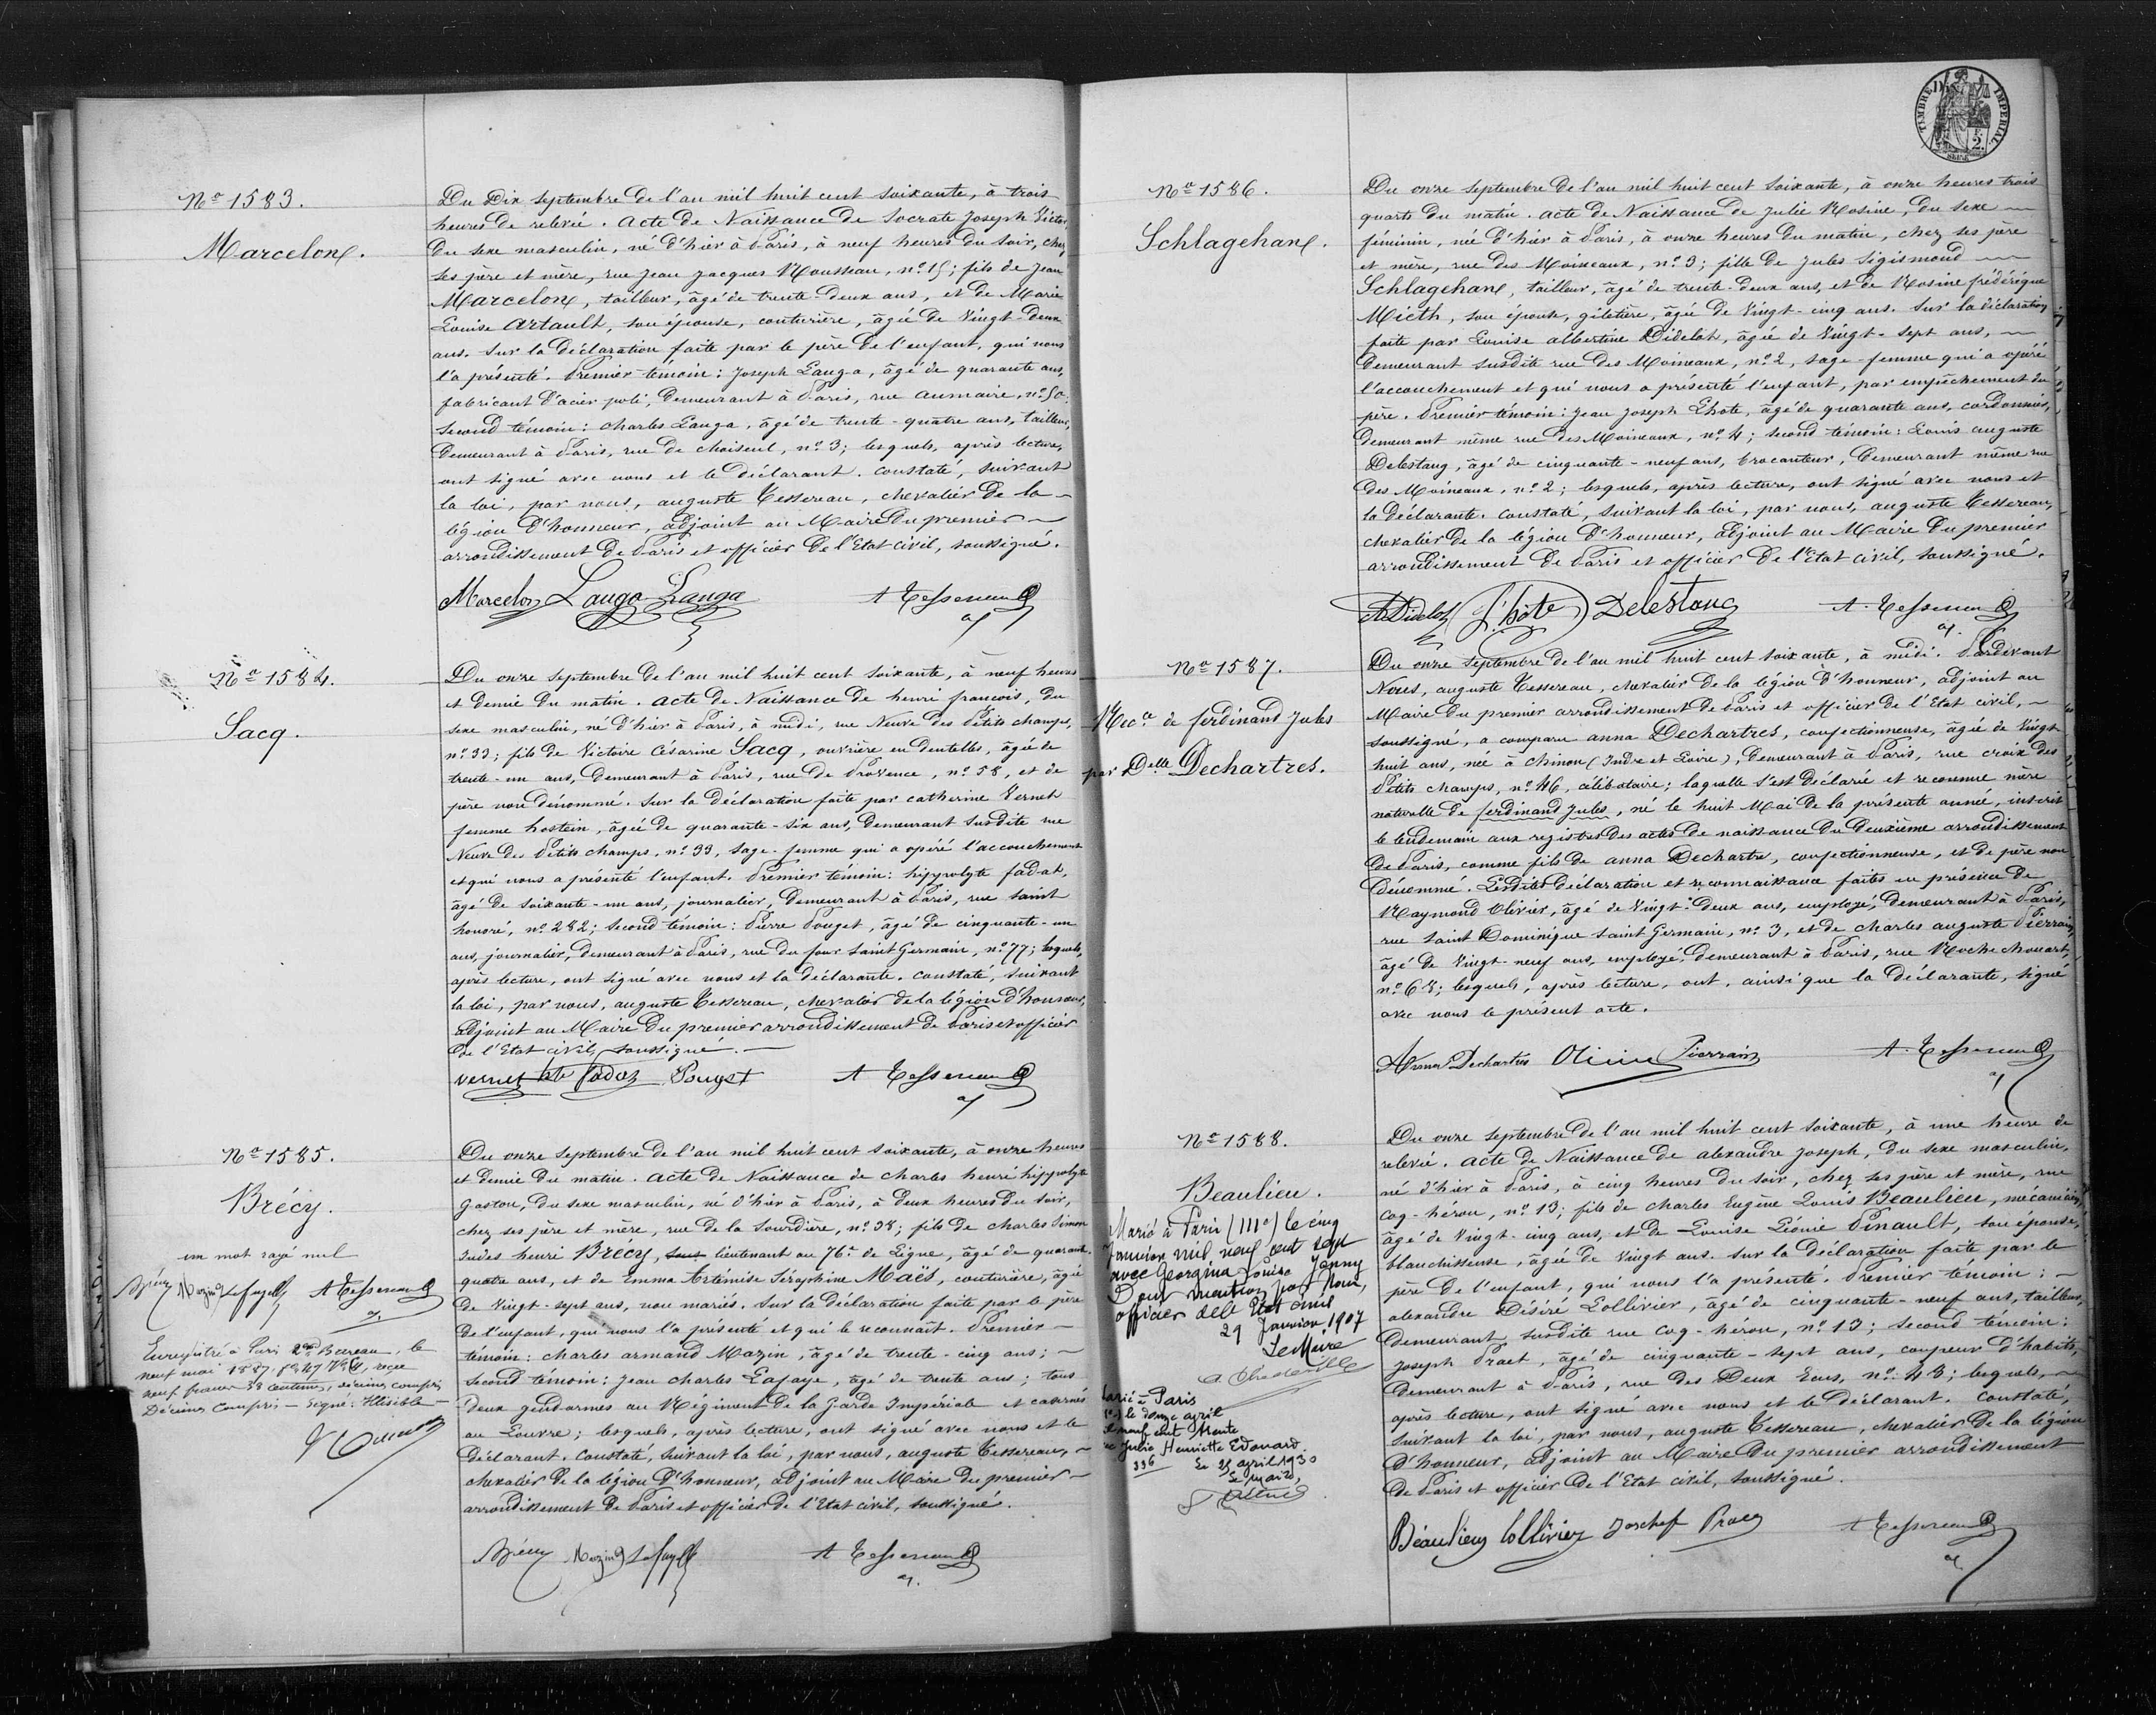 No 1583.
Marcelon.
Du Dix Septembre de l'an mil huit cent soixante, à trois
heures de relevée. Acte de Naissance de Socrate Joseph Victor,
du sexe masculin, né d'hier à Paris, à neuf heures du soir, chez
ses père et mère, rue Jean Jacques Rousseau, no. 15; fils de Jean
Marcelon, tailleur, âgé de trente-deux ans, et de Marie
Louise Artault, son épouse, couturière, âgée de vingt-deux
ans. Sur la déclaration faite par le père de l'enfant, qui nous
l'a présenté. Premier témoin: Joseph Lauga, âgé de quarante ans,
fabricant d'acier poli, demeurant à Paris, rue Aumaire, no. 50;
second témoin: Charles Lauga, âgé de trente-quatre ans, tailleur,
demeurant à Paris, rue de Choiseul, no. 3; lesquels, après lecture,
ont signé avec nous et le déclarant. Constaté, suivant
la loi, par nous, Auguste Tessereau, chevalier de la
légion d'honneur, adjoint au Maire du premier
arrondissement de Paris et officier de l'Etat civil, soussigné.
Marcelon Lauga Lauga A Tessereau
No 1584.
Sacq.
Du onze Septembre de l'an mil huit cent soixante, à neuf heures
et demie du matin. Acte de Naissance de henri françois, du
sexe masculin, né d'hier à Paris, à midi, rue Neuve des Petits champs,
no. 33; fils de Victoire Césarine Sacq, ouvrière en dentelles, âgée de
trente-un ans, demeurant à Paris, rue de Provence, no. 58, et de
père non dénommé. Sur la déclaration faite par Catherine Vernet
femme hostein, âgée de quarante-six ans, demeurant susdite rue
Neuve des Petits champs, no. 33, sage-femme qui a opéré l'accouchement
et qui nous a présenté l'enfant. Premier témoin: hippolyte fadat,
âgé de soixante-un ans, journalier, demeurant à Paris, rue saint
honoré, no. 282; second témoin: Pierre Pouget, âgé de cinquante-un
ans, journalier, demeurant à Paris, rue du four Saint Germain, no. 77; lesquels,
après lecture, ont signé avec nous et la déclarante. Constaté, suivant
la loi, par nous, Auguste Tessereau, chevalier de la légion d'honneur,
adjoint au Maire du premier arrondissement de Paris et officier
de l'Etat civil, soussigné.
Vernet fadat Pouget A Tessereau
No 1585.
Brécy.
un mot rayé nul
Brécy Mazin Lafaye A Tessereau
Enregistré à Paris 2me Bureau, le
neuf mai 1887, reçu
neuf francs 38 centimes, décimes compris
Décimes compris — Signé: Illisible
Du onze Septembre de l'an mil huit cent soixante, à onze heures
et demie du matin. Acte de Naissance de Charles henri hippolyte
Gaston, du sexe masculin, né d'hier à Paris, à deux heures du soir,
chez ses père et mère, rue de la Sourdière, no. 38; fils de Charles Simon
Judes henri Brécy, sous lieutenant au 76e de Ligne, âgé de quarante-
quatre ans, et de Emma Artémise Séraphine Maës, couturière, âgée
de vingt-sept ans, non mariés. Sur la déclaration faite par le père
de l'enfant, qui nous l'a présenté et qui le reconnaît. Premier
témoin: Charles Armand Mazin, âgé de trente-cinq ans;
second témoin: Jean Charles Lafaye, âgé de trente ans; tous
deux gendarmes au Régiment de la Garde Impériale et casernés
au Louvre; lesquels, après lecture, ont signé avec nous et le
déclarant. Constaté, suivant la loi, par nous, Auguste Tessereau,
chevalier de la légion d'honneur, adjoint au Maire du premier
arrondissement de Paris et officier de l'Etat civil, soussigné.
Brécy Mazin Lafaye A Tessereau
TIMBRE IMPERIAL
2.
SEINE
No 1586.
Schlagehan.
Du onze Septembre de l'an mil huit cent soixante, à onze heures trois
quarts du matin. Acte de Naissance de Julie Rosine, du sexe
féminin, née d'hier à Paris, à onze heures du matin, chez ses père
et mère, rue des Moineaux, no. 3; fille de Jules Sigismond
Schlagehan, tailleur, âgé de trente-deux ans, et de Rosine frédérique
Mieth, son épouse, giletière, âgée de vingt-cinq ans. Sur la déclaration
faite par Louise Albertine Didelot, âgée de vingt-sept ans,
demeurant susdite rue des Moineaux, no. 2, sage-femme qui a opéré
l'accouchement et qui nous a présenté l'enfant, par empêchement du
père. Premier témoin: Jean Joseph Lhote, âgé de quarante ans, cordonnier,
demeurant même rue des Moineaux, no. 4; second témoin: Louis Auguste
Delestang, âgé de cinquante-neuf ans, brocanteur, demeurant même rue
des Moineaux, no. 2; lesquels, après lecture, ont signé avec nous et
la déclarante. Constaté, suivant la loi, par nous, Auguste Tessereau,
chevalier de la légion d'honneur, adjoint au Maire du premier
arrondissement de Paris et officier de l'Etat civil, soussigné.
A Didelot L'hôte Delestang A. Tessereau
No 1587.
Recce de ferdinand Jules
par Delle Dechartres.
Du onze Septembre de l'an mil huit cent soixante, à midi. Pardevant
Nous, Auguste Tessereau, chevalier de la légion d'honneur, adjoint au
Maire du premier arrondissement de Paris et officier de l'Etat civil,
soussigné, a comparu Anna Dechartres, confectionneuse, âgée de vingt
huit ans, née à Chinon (Indre et Loire), demeurant à Paris, rue croix des
Petits champs, no. 46, célibataire; laquelle s'est déclarée et reconnue mère
naturelle de ferdinand Jules, né le huit Mai de la présente année, inscrit
le lendemain aux registres des actes de naissance du deuxième arrondissement
de Paris, comme fils de Anna Dechartre, confectionneuse, et de père non
dénommé. Lesdites déclaration et reconnaissance faites en présence de
Raymond Olivier, âgé de vingt-deux ans, employé, demeurant à Paris,
rue Saint Dominique Saint Germain, no. 3, et de Charles Auguste Pierrain,
âgé de vingt-neuf ans, employé, demeurant à Paris, rue Rochechouart,
no. 68; lesquels, après lecture, ont, ainsi que la déclarante, signé
avec nous le présent acte.
Anna Dechartres Olivier Pierrain A. Tessereau
No 1588.
Beaulieu.
Marié à Paris (IIIe) le cinq
Janvier mil neuf cent sept
avec Georgina Louise Jenny
Pour mention par Nous,
officier de l'Etat civil
29 Janvier 1907
Le Maire
Marié à Paris
le douze avril
neuf cent trente
Julie Henriette Edouard.
336 Le 25 avril 1930
Le Maire,
Du onze Septembre de l'an mil huit cent soixante, à une heure de
relevée. Acte de Naissance de Alexandre Joseph, du sexe masculin,
né d'hier à Paris, à cinq heures du soir, chez ses père et mère, rue
Coq-héron, no. 13; fils de Charles Eugène Louis Beaulieu, mécanicien,
âgé de vingt-cinq ans, et de Louise Léonie Pinault, son épouse,
blanchisseuse, âgée de vingt ans. Sur la déclaration faite par le
père de l'enfant, qui nous l'a présenté. Premier témoin:
Alexandre Désiré Lollivier, âgé de cinquante-neuf ans, tailleur,
demeurant susdite rue Coq-héron, no. 13; second témoin:
Joseph Praet, âgé de cinquante-sept ans, coupeur d'habits,
demeurant à Paris, rue des Deux Ecus, no. 43; lesquels,
après lecture, ont signé avec nous et le déclarant. Constaté,
suivant la loi, par nous, Auguste Tessereau, chevalier de la légion
d'honneur, adjoint au Maire du premier arrondissement
de Paris et officier de l'Etat civil, soussigné.
Beaulieu Lollivier Joschef Praet A Tessereau